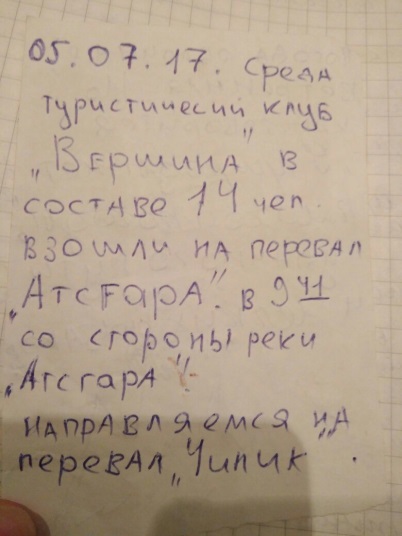 05.07.17. Среда
туристический клуб
„Вершина" в
составе 14 чел.
взошли на перевал
„Атсгара". в 9 41
со стороны реки
„Атсгара".
направляемся на
перевал „Чипик".